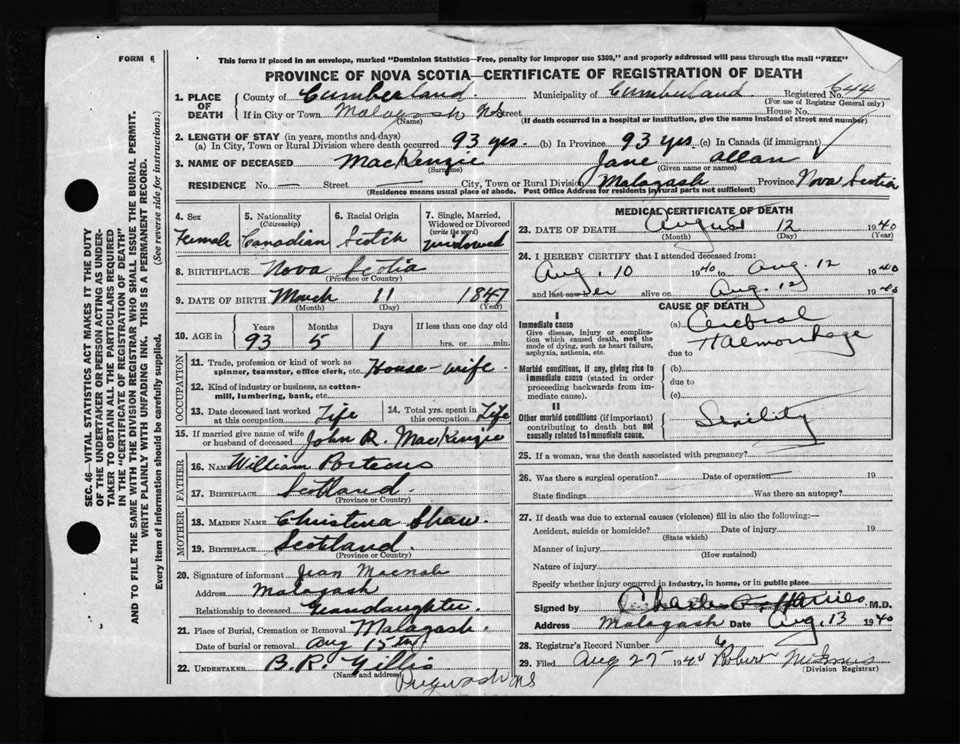 FORM 6
This form if placed in an envelope, marked "Dominion Statistics—Free, penalty for improper use $300," and properly addressed will pass through the mail "FREE"
PROVINCE OF NOVA SCOTIA—CERTIFICATE OF REGISTRATION OF DEATH
1. PLACE OF DEATH
County of Cumberland Municipality of Cumberland Registered No. 644
(For use of Registrar General only)
If in City or Town Malagash N.S. Street House No.
(Name) (If death occurred in a hospital or institution, give the name instead of street and number)
2. LENGTH OF STAY (in years, months and days)
(a) In City, Town or Rural Division where death occurred 93 yrs. (b) In Province 93 yrs. (c) In Canada (if immigrant)
3. NAME OF DECEASED MacKenzie Jane Allan
(Surname) (Given name or names)
RESIDENCE No. — Street — City, Town or Rural Division Malagash Province Nova Scotia
(Residence means usual place of abode. Post Office Address for residents in rural parts not sufficient)
4. Sex
Female
5. Nationality
(Citizenship)
Canadian
6. Racial Origin
Scotch
7. Single, Married, Widowed or Divorced
(write the word)
widowed
8. BIRTHPLACE Nova Scotia
(Province or Country)
9. DATE OF BIRTH March 11 1847
(Month) (Day) (Year)
10. AGE in Years Months Days If less than one day old
93 5 1 hrs. or min.
OCCUPATION
11. Trade, profession or kind of work as spinner, teamster, office clerk, etc. House-wife.
12. Kind of industry or business, as cotton-mill, lumbering, bank, etc.
13. Date deceased last worked at this occupation Life
14. Total yrs. spent in this occupation Life
15. If married give name of wife or husband of deceased John R. MacKenzie
FATHER
16. NAME William Porteous
17. BIRTHPLACE Scotland.
(Province or Country)
MOTHER
18. MAIDEN NAME Christena Shaw.
19. BIRTHPLACE Scotland.
(Province or Country)
20. Signature of informant Jean Macnab
Address Malagash
Relationship to deceased Grandaughter.
21. Place of Burial, Cremation or Removal Malagash.
Date of burial or removal Aug 15th
22. UNDERTAKER B. R. Gillis
(Name and address)
Pugwash NS
MEDICAL CERTIFICATE OF DEATH
23. DATE OF DEATH August 12 1940
(Month) (Day) (Year)
24. I HEREBY CERTIFY that I attended deceased from:
Aug. 10 1940 to Aug. 12 1940
and last saw her alive on Aug. 12 1940
CAUSE OF DEATH
I
Immediate cause
Give disease, injury or complication which caused death, not the mode of dying, such as heart failure, asphyxia, asthenia, etc.
(a) Cerebral Haemorrhage
due to
Morbid conditions, if any, giving rise to immediate cause (stated in order proceeding backwards from immediate).
(b)
due to
(c)
II
Other morbid conditions (if important) contributing to death but not causally related to immediate cause.
Senility
25. If a woman, was the death associated with pregnancy?
26. Was there a surgical operation? Date of operation 19
State findings Was there an autopsy?
27. If death was due to external causes (violence) fill in also the following:—
Accident, suicide or homicide? Date of injury 19
(State which)
Manner of injury
(How sustained)
Nature of injury
Specify whether injury occurred in industry, in home, or in public place
Signed by Charles M.D.
Address Malagash Date Aug. 13 1940
28. Registrar's Record Number
29. Filed Aug 27 1940 Robert
(Division Registrar)
SEC. 46—VITAL STATISTICS ACT MAKES IT THE DUTY
OF THE UNDERTAKER OR PERSON ACTING AS UNDER-
TAKER TO OBTAIN ALL THE PARTICULARS REQUIRED
IN THE "CERTIFICATE OF REGISTRATION OF DEATH"
AND TO FILE THE SAME WITH THE DIVISION REGISTRAR WHO SHALL ISSUE THE BURIAL PERMIT.
WRITE PLAINLY WITH UNFADING INK. THIS IS A PERMANENT RECORD.
Every item of information should be carefully supplied. (See reverse side for instructions.)